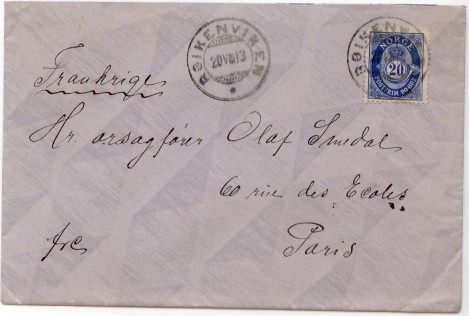 RØIKENVIKEN
20 VII 13
RØIKENVIK
NORGE
20
POSTFRIM 20 ØRE
Frankrige
Hr. orsagfører Olaf Smedal
60 rue des Ecoles
Paris